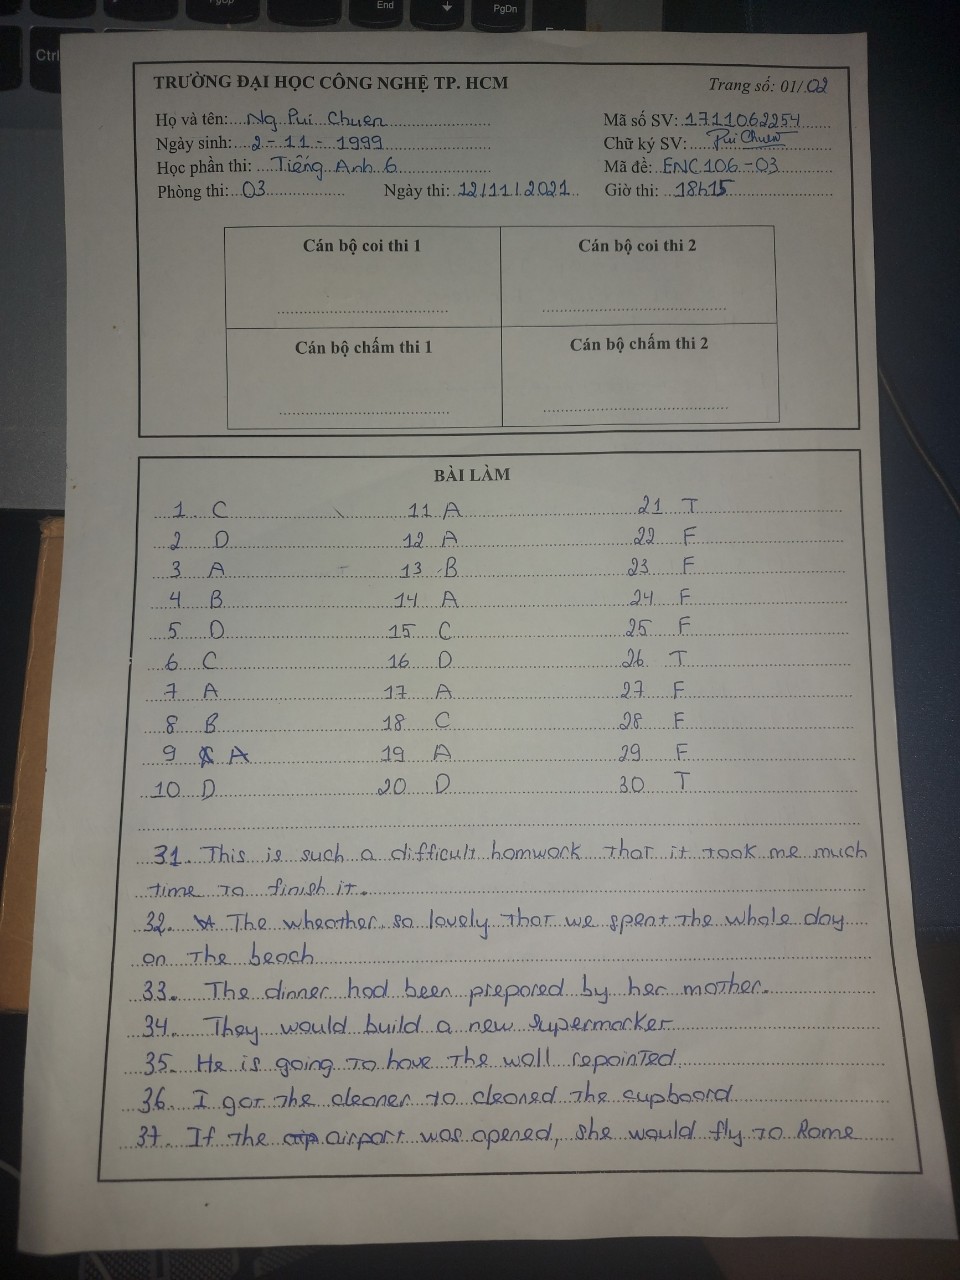 End
PgDn
Ctrl
TRƯỜNG ĐẠI HỌC CÔNG NGHỆ TP. HCM
Trang số: 01/02
Họ và tên: Ng Pui Chuen
Mã số SV: 1711062254
Ngày sinh: 2-11-1999
Chữ ký SV: Pui Chuen
Học phần thi: Tiếng Anh 6
Mã đề: ENC106-03
Phòng thi: 03 Ngày thi: 12/11/2021 Giờ thi: 18h15
Cán bộ coi thi 1 Cán bộ coi thi 2
Cán bộ chấm thi 1 Cán bộ chấm thi 2
BÀI LÀM
1 C 11 A 21 T
2 D 12 A 22 F
3 A 13 B 23 F
4 B 14 A 24 F
5 D 15 C 25 F
6 C 16 D 26 T
7 A 17 A 27 F
8 B 18 C 28 F
9 A 19 A 29 F
10 D 20 D 30 T
31. This is such a difficult homwork that it took me much
time to finish it.
32. The wheather so lovely that we spent the whole day
on the beach
33. The dinner had been prepared by her mother.
34. They would build a new supermarker
35. He is going to have the wall repainted
36. I got the cleaner to cleaned the cupboard
37. If the airport was opened, she would fly to Rome